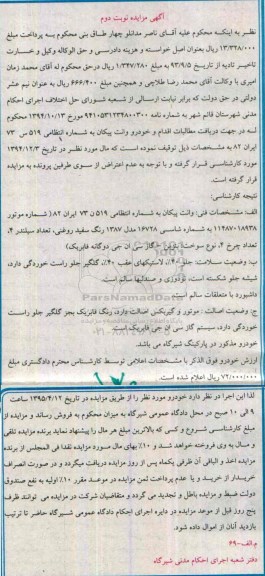 آگهی مزایده نوبت دوم
نظر به اینکه محکوم علیه آقای ناصر مدانلو چهار طاق بنی محکوم به پرداخت مبلغ
۱۳/۳۴۸/۰۰۰ ریال بعنوان اصل خواسته و هزینه دادرسی و حق الوکاله وکیل و خسارت
تاخیر تادیه از تاریخ ۹۳/۸/۵ به مبلغ ۱/۳۴۷/۲۸۰ ریال در حق محکوم له آقای محمد زمان
امیری با وکالت آقای محمد رضا طلاچی و همچنین مبلغ ۶۶۶/۴۰۰ ریال به عنوان نیم عشر
دولتی در حق دولت که برابر نیابت ارسالی از شعبه شورای حل اختلاف اجرای احکام
مدنی شهرستان قائم شهر به شماره نامه ۹۴۱۰۵۳۱۲۳۴۸۰۰۳۰۰ مورخ ۱۳۹۴/۱۰/۱۳ محکوم
له در جهت دریافت مطالبات اقدام و خودرو وانت پیکان به شماره انتظامی ۵۱۹ س ۷۳
ایران ۸۲ به مشخصات ذیل توقیف نموده است که مال مورد نظر در تاریخ ۱۳۹۴/۱۲/۳
مورد کارشناسی قرار گرفته و با توجه به عدم اعتراض از سوی طرفین پرونده به مزایده
قرار گرفته است.
نتیجه کارشناسی:
الف: مشخصات فنی: وانت پیکان به شماره انتظامی ۵۱۹ ن ۷۳ ایران ۸۲ شماره موتور
۱۱۴۸۷۰۱۸۹۳۸ به شماره شاسی ۱۶۷۲۸ مدل ۱۳۸۷ رنگ سفید روغنی، تعداد سیلندر ۴،
تعداد چرخ ۴، نوع سوخت بنزین - گاز سی ان جی دوگانه فابریک)
ب: وضعیت سلامت: جلو ۴۰٪ لاستیکهای عقب ۶۰٪، گلگیر جلو راست خوردگی دارد،
شیشه جلو شکسته است، تودوزی و صندلیها سالم است.
داشبورد با متعلقات سالم است.
ج: وضعیت اصالت: موتور و گیربکس اصالت دارد، رنگ فابریک بجز گلگیر جلو راست
خوردگی دارد، سیستم گاز سی ان جی فابریک است.
خودرو مذکور در پارکینگ شیرگاه می باشد.
ارزش خودرو فوق الذکر با مشخصات اعلامی توسط کارشناس محترم دادگستری مبلغ
۷۲/۰۰۰/۰۰۰ ریال اعلام شده است.
لذا این اجرا در نظر دارد خودرو مورد نظر را از طریق مزایده در تاریخ ۱۳۹۵/۴/۱۲ ساعت
۹ الی ۱۰ صبح در محل دادگاه عمومی شیرگاه به میزان محکوم به فروش رساند و مزایده از
مبلغ کارشناسی شروع و کسی که بالاترین مبلغ هر مال را پیشنهاد نماید برنده مزایده تلقی
و مال به وی فروخته خواهد شد و ۱۰٪ بهای مال مورد مزایده نقدا فی المجلس از برنده
مزایده اخذ و الباقی آن ظرفی یکماه پس از روز مزایده دریافت میگردد و در صورت انصراف
خریدار از خرید و یا عدم پرداخت ثمن مزایده در موعد مقرر ۱۰٪ اولیه به نفع صندوق
دولت ضبط و مزایده باطل و تجدید می گردد و متقاضیان شرکت در مزایده می توانند ظرف
پنج روز قبل از موعد مزایده در دایره اجرای احکام دادگاه عمومی شیرگاه حاضر تا ترتیب
بازدید آنان از اموال داده شود.
م.الف-۶۹
دفتر شعبه اجرای احکام مدنی شیرگاه